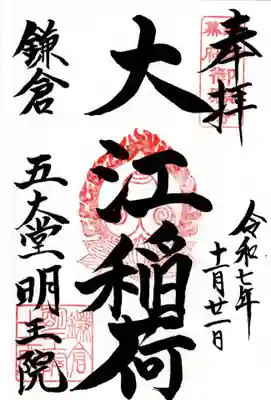 奉拝
令和七年
十一月廿一日
大江稲荷
鎌倉
五大堂明王院